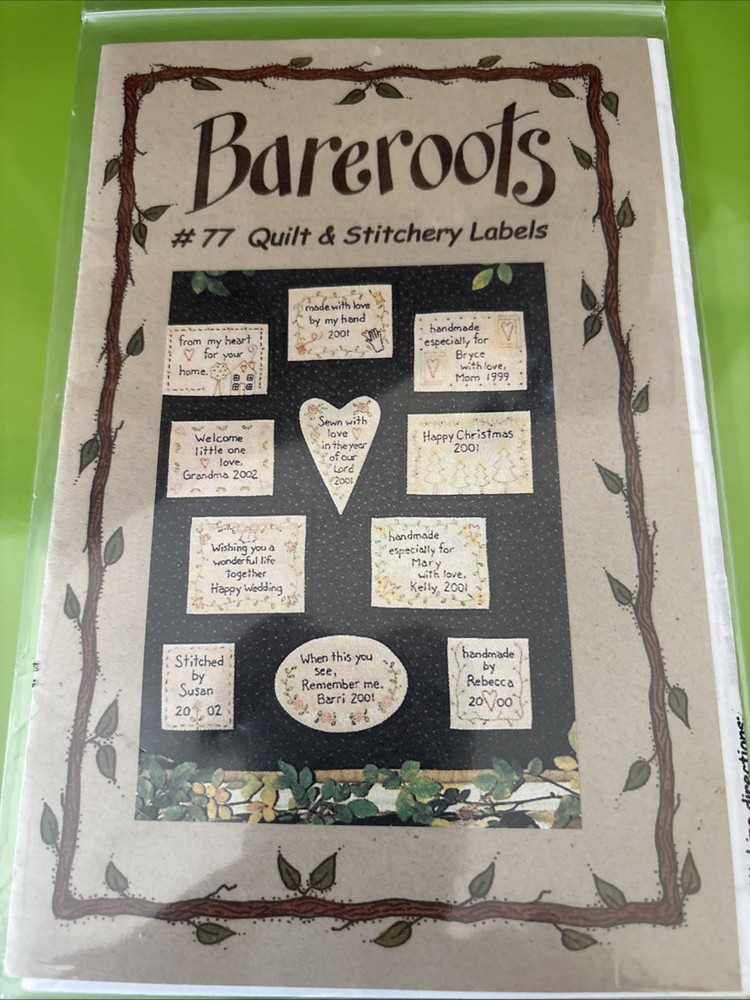 Bareroots
# 77 Quilt & Stitchery Labels
made with love
by my hand
2001
from my heart
for your
home.
handmade
especially for
Bryce
with love,
Mom 1999
Sewn with
love
in the year
of our
Lord
2001
Welcome
little one
love,
Grandma 2002
Happy Christmas
2001
Wishing you a
wonderful life
together
Happy Wedding
handmade
especially for
Mary
with love,
Kelly, 2001
Stitched
by
Susan
20 02
When this you
see,
Remember me.
Barri 2001
handmade
by
Rebecca
20 00
directions: